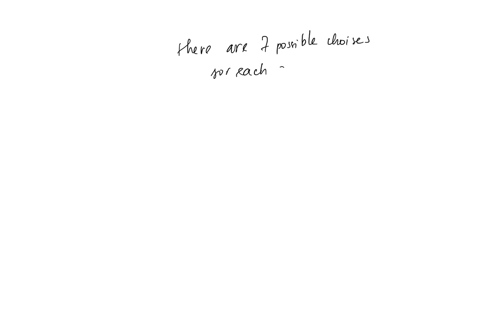 there are 7 possible choises
for each -